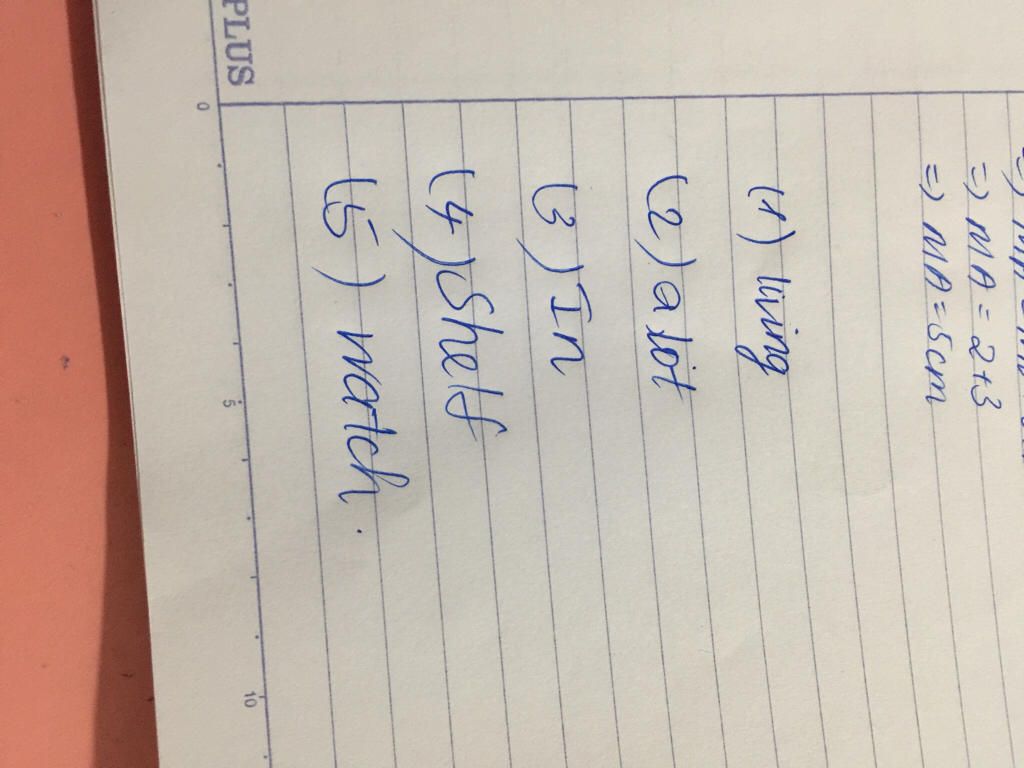 => MA = 2+3
=> MA = 5cm
(1) living
(2) a lot
(3) In
(4) Shelf
(5) watch.
PLUS
0
5
10